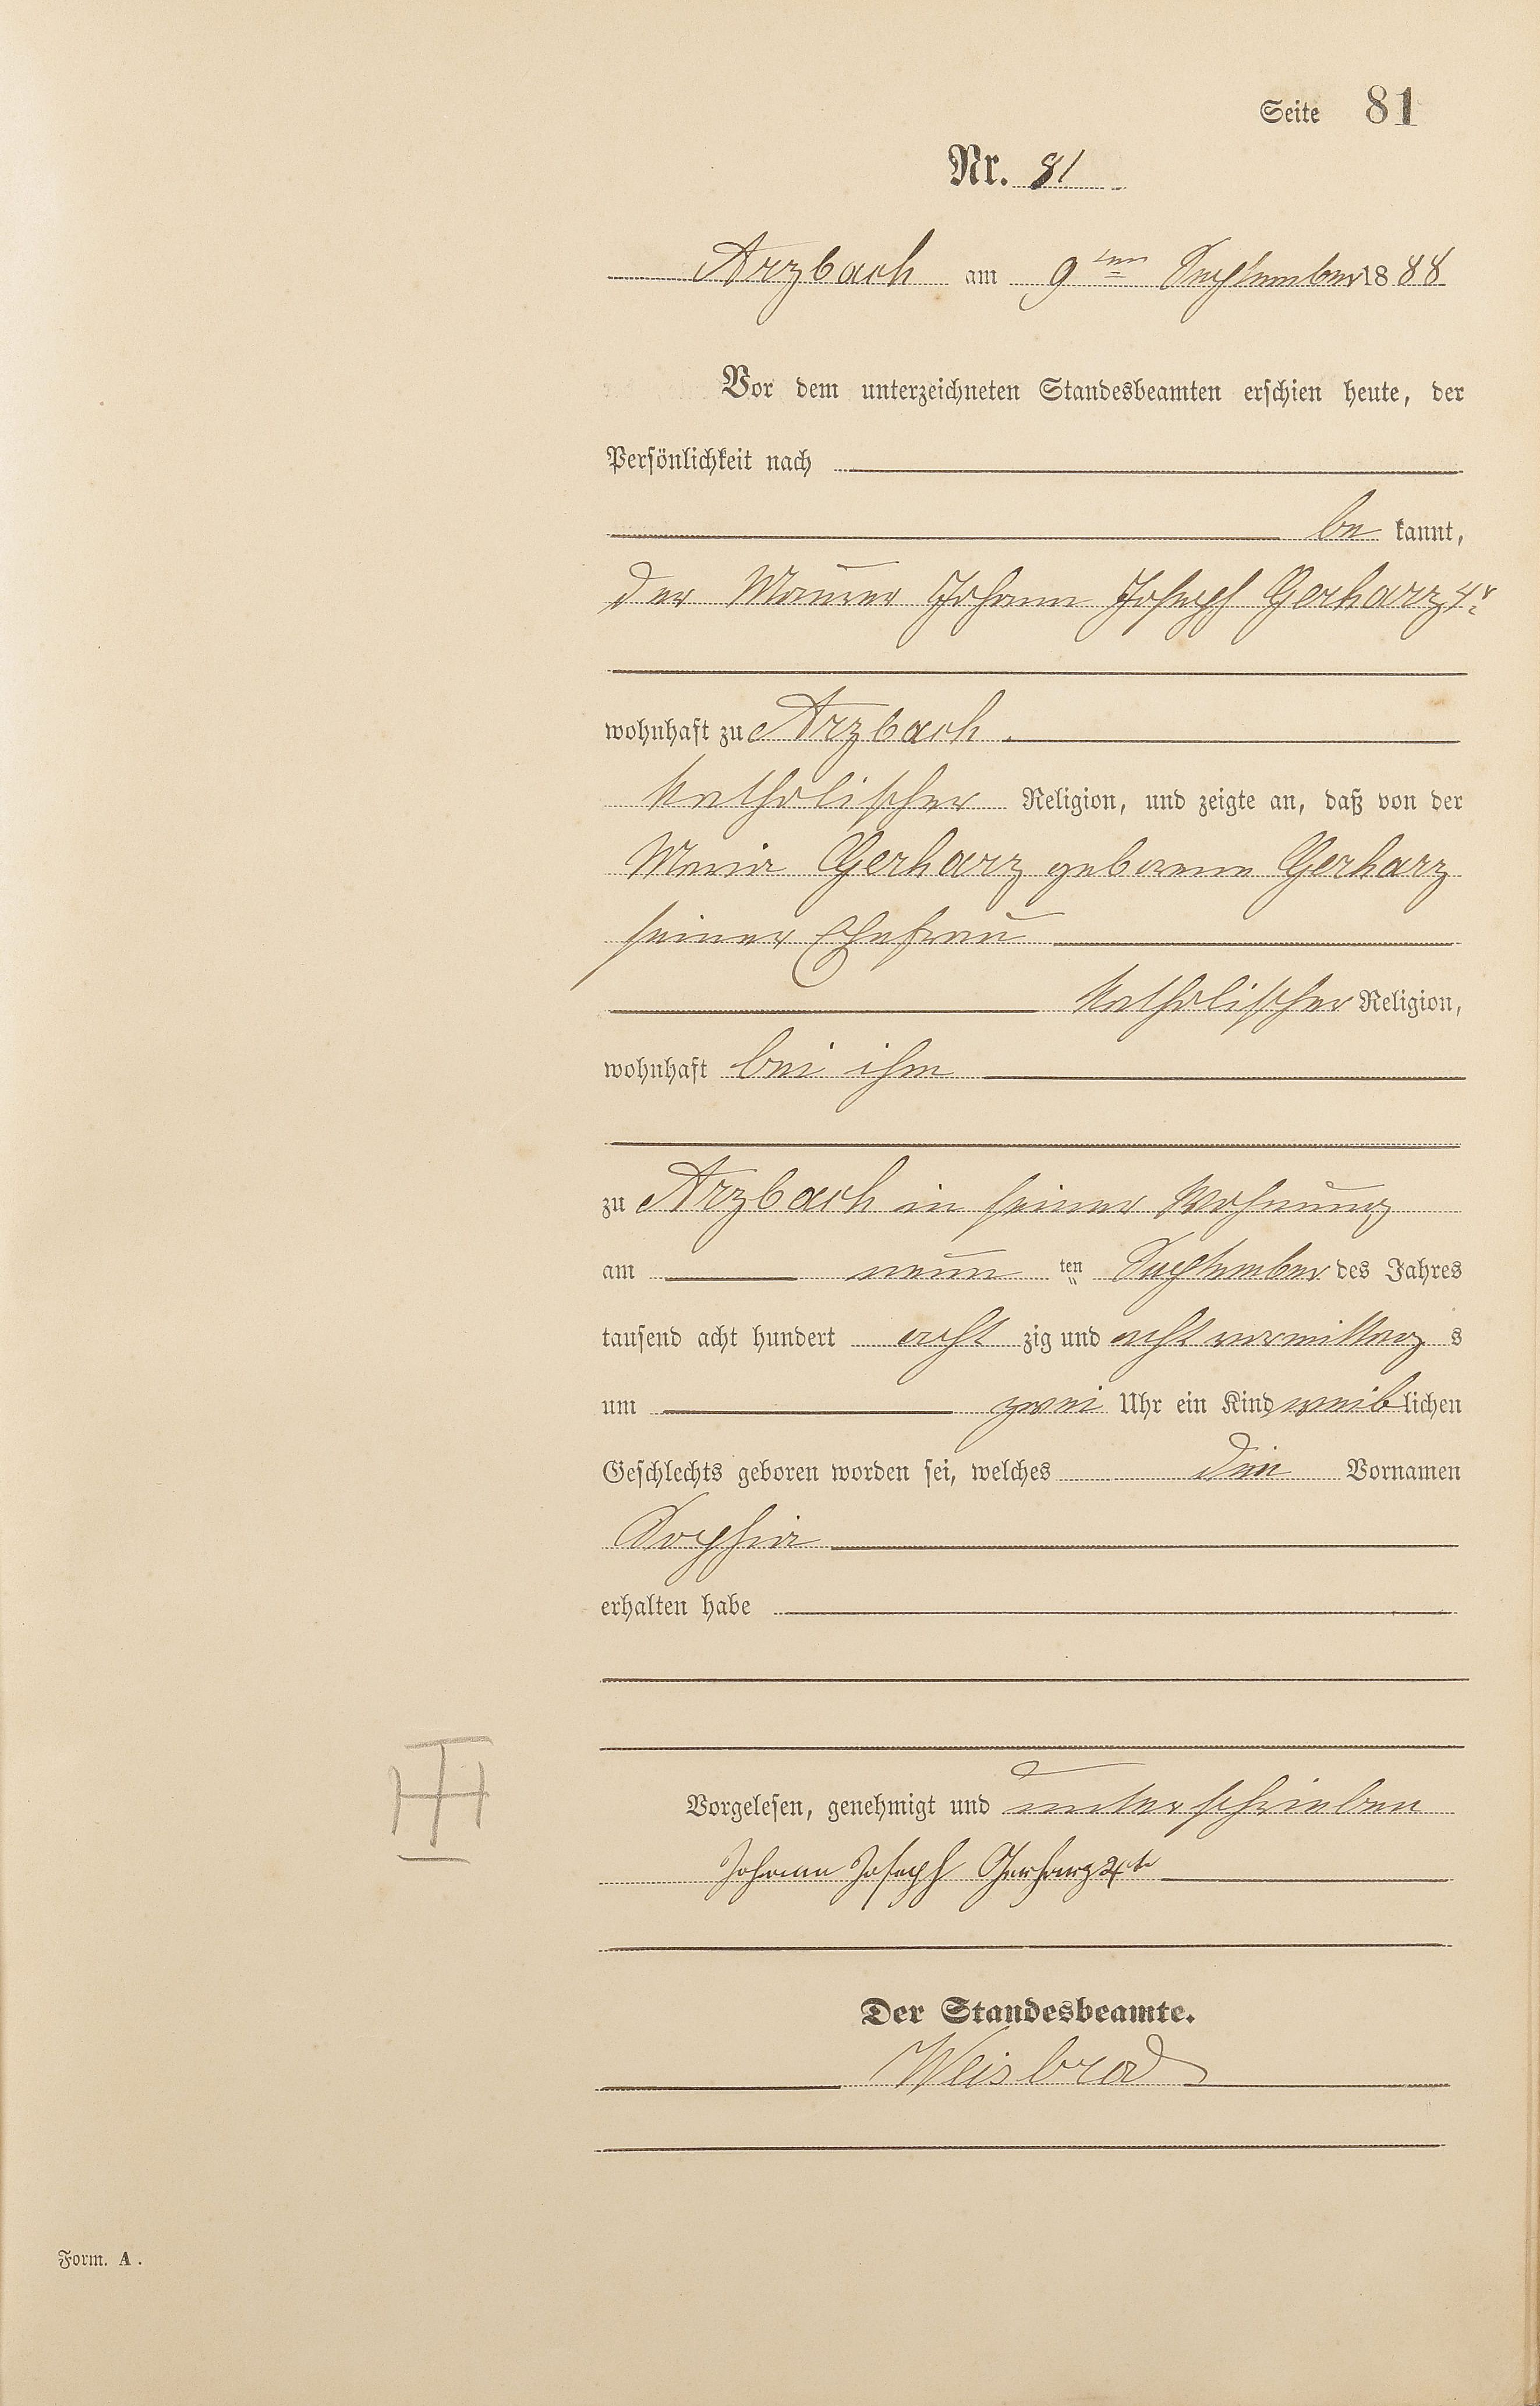 Seite 81
Nr. 81
Arzbach am 9ten September 1888
Vor dem unterzeichneten Standesbeamten erschien heute, der
Persönlichkeit nach
be kannt,
der Maurer Johann Joseph Gerharz 4r
wohnhaft zu Arzbach.
katholischer Religion, und zeigte an, daß von der
Maria Gerharz geborene Gerharz
seiner Ehefrau
katholischer Religion,
wohnhaft bei ihm
zu Arzbach in seiner Wohnung
am neun ten September des Jahres
tausend acht hundert acht zig und acht vormittag s
um zwei Uhr ein Kind weiblichen
Geschlechts geboren worden sei, welches den Vornamen
Sophia
erhalten habe
Vorgelesen, genehmigt und unterschrieben
Johann Joseph Gerharz 4te
Der Standesbeamte.
Weisbrod
Form. A.